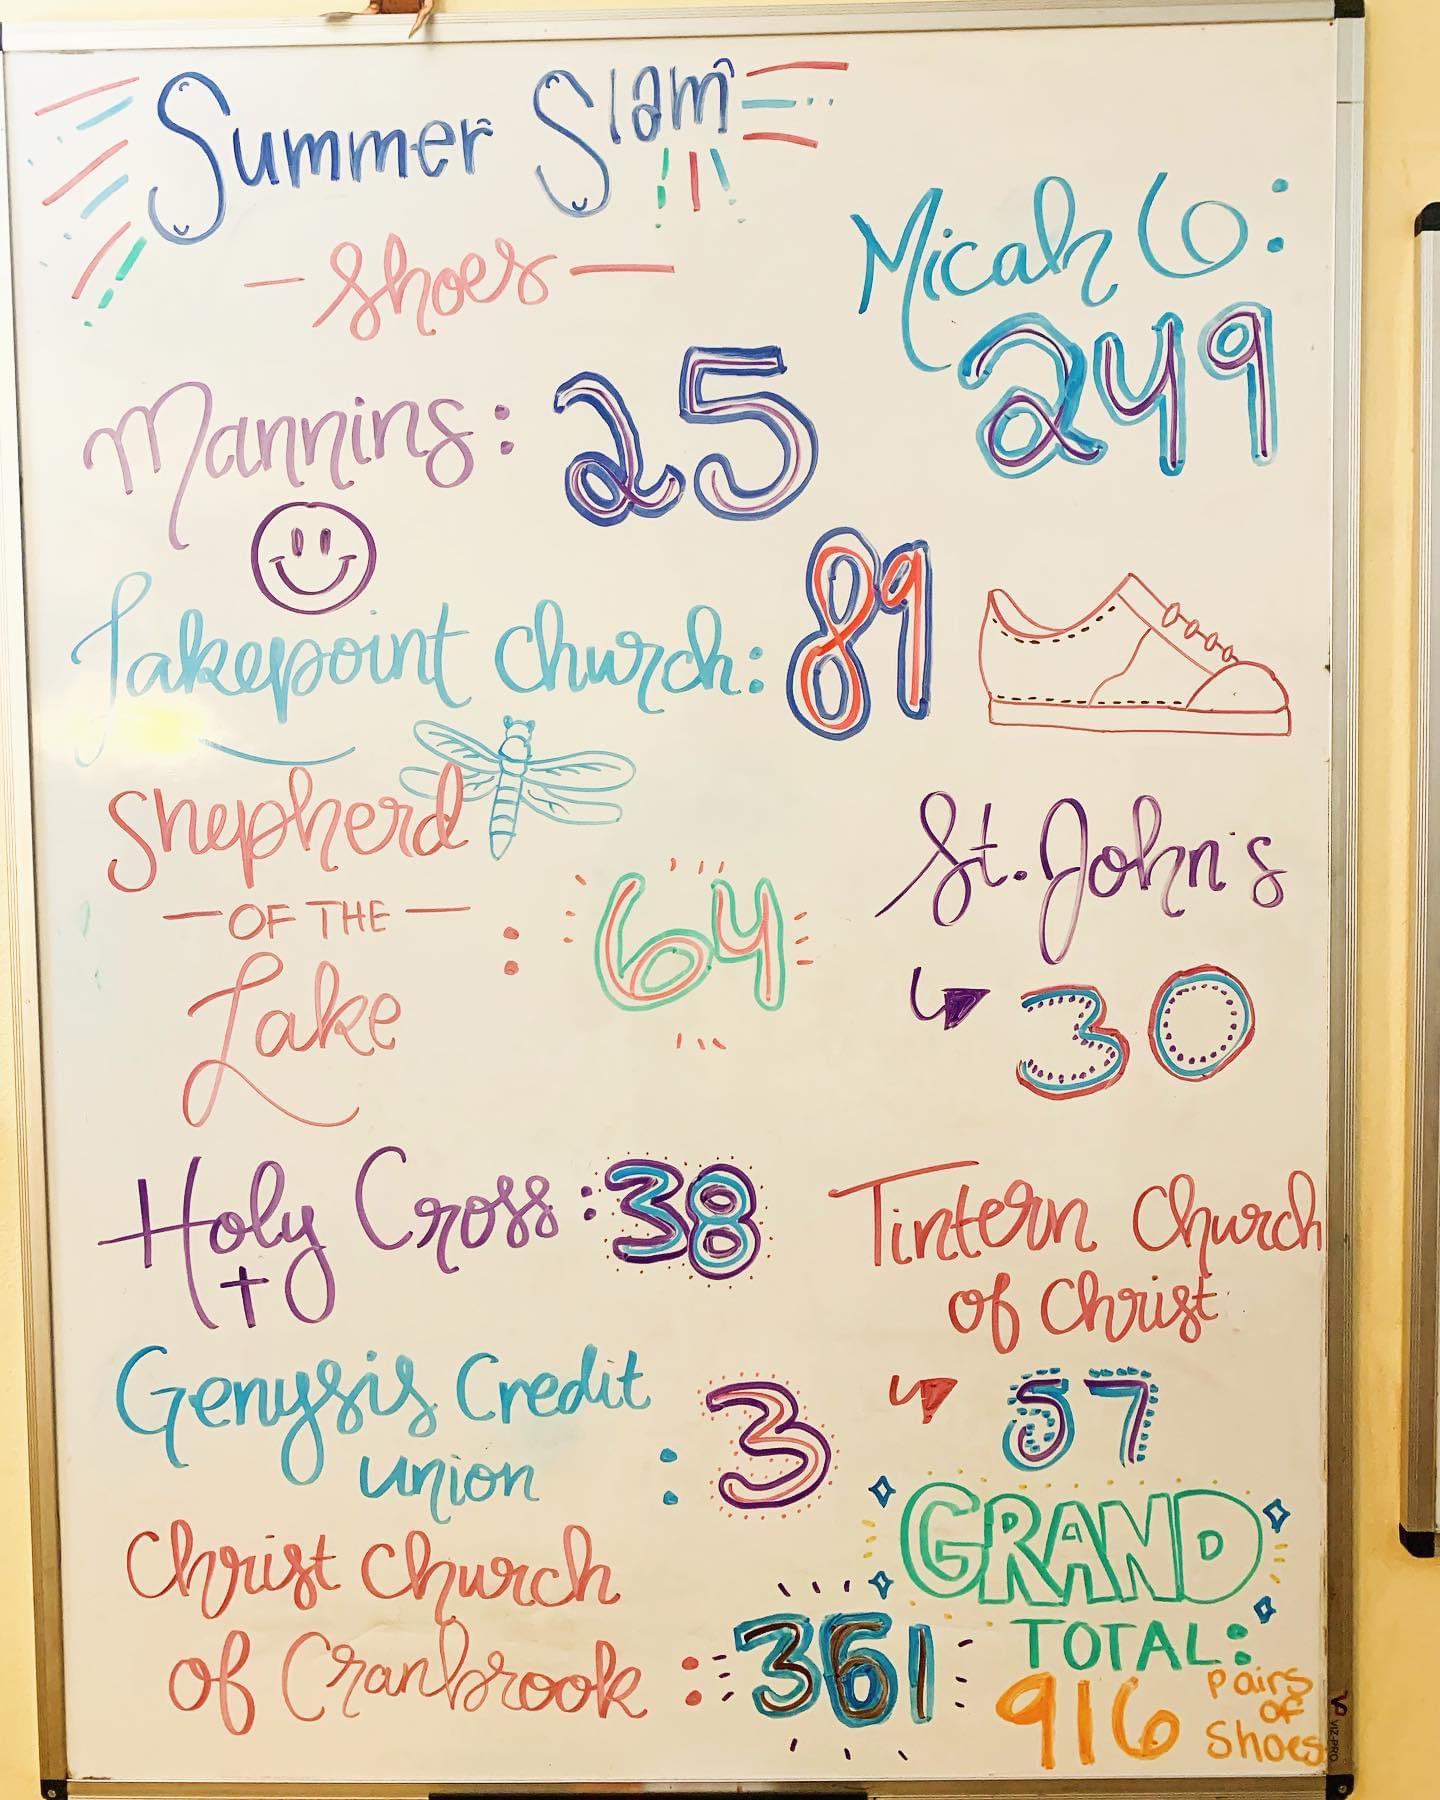 Summer Slam
- Shoes -
Micah 6:
249
Mannins: 25
Lakepoint Church: 89
Shepherd
- OF THE - : 64
Lake
St. John's
30
Holy Cross: 38
Tintern Church
of Christ
57
Genysis Credit
union : 3
Christ Church
of Cranbrook: 361
GRAND
TOTAL:
916 pairs
of
shoes
VIZ-PRO